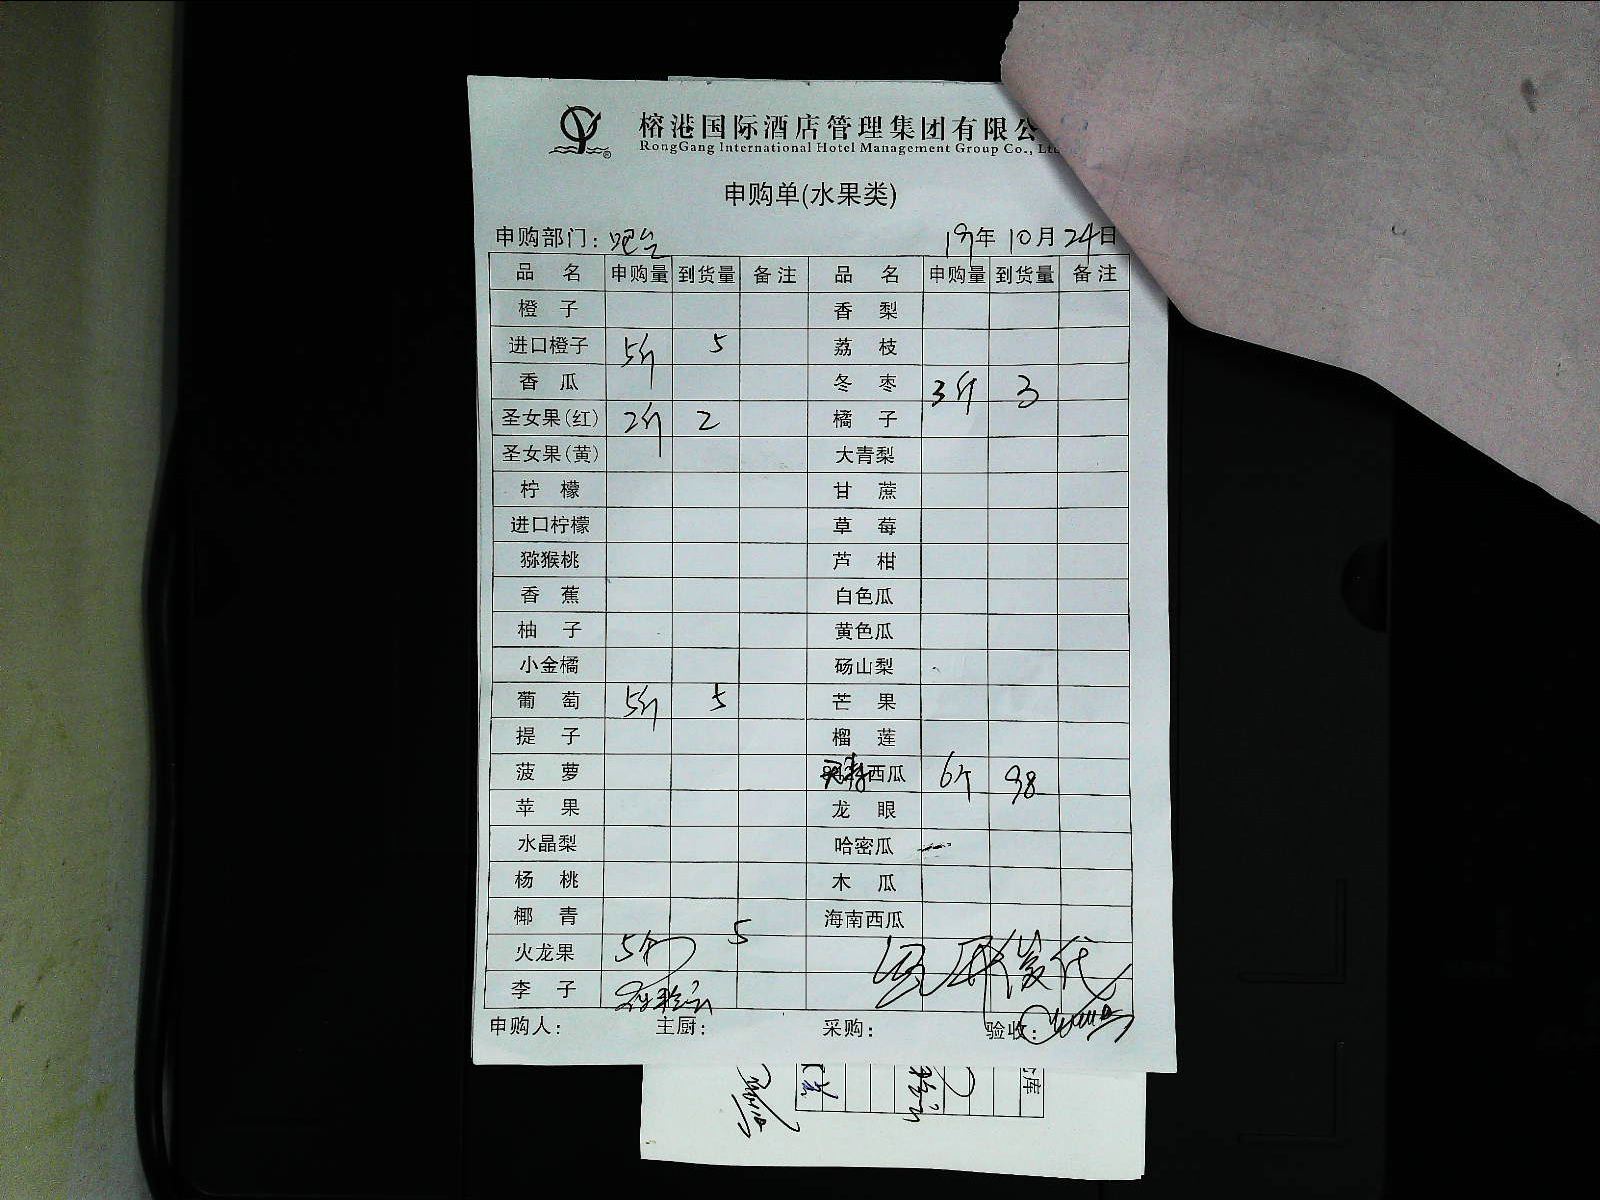 榕港国际酒店管理集团有限公
RongGang International Hotel Management Group Co., Ltd
申购单(水果类)
申购部门：吧台 19年10月24日
品名 申购量 到货量 备注 品名 申购量 到货量 备注
橙子 香梨
进口橙子 5斤 5 荔枝
香瓜 冬枣 3斤 3
圣女果(红) 2斤 2 橘子
圣女果(黄) 大青梨
柠檬 甘蔗
进口柠檬 草莓
猕猴桃 芦柑
香蕉 白色瓜
柚子 黄色瓜
小金橘 砀山梨
葡萄 5斤 5 芒果
提子 榴莲
菠萝 西瓜 6个 98
苹果 龙眼
水晶梨 哈密瓜
杨桃 木瓜
椰青 海南西瓜
火龙果 5个 5
李子
申购人： 主厨： 采购： 验收：
库